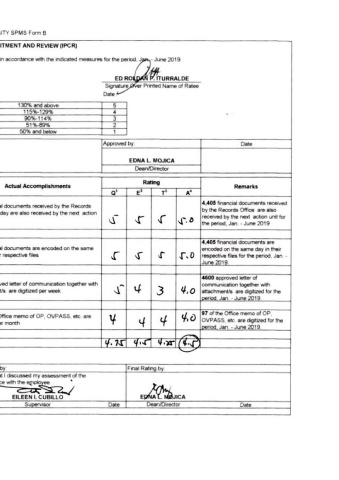 ITY SPMS Form B
ITMENT AND REVIEW (IPCR)
in accordance with the indicated measures for the period, Jan. - June 2019
ED ROLDAN P. ITURRALDE
Signature Over Printed Name of Ratee
Date
130% and above 5
115%-129% 4
90%-114% 3
51%-89% 2
50% and below 1
Approved by: Date
EDNA L. MOJICA
Dean/Director
Actual Accomplishments Rating Remarks
Q1 E2 T3 A4
al documents received by the Records
day are also received by the next action
5 5 5 5.0
4,405 financial documents received
by the Records Office are also
received by the next action unit for
the period, Jan. - June 2019
al documents are encoded on the same
respective files
5 5 5 5.0
4,405 financial documents are
encoded on the same day in their
respective files for the period, Jan. -
June 2019.
ved letter of communication together with
t/s are digitized per week
5 4 3 4.0
4609 approved letter of
communication together with
attachment/s are digitized for the
period, Jan. - June 2019.
Office memo of OP, OVPASS, etc. are
e month
4 4 4 4.0
97 of the Office memo of OP,
OVPASS, etc. are digitized for the
period, Jan. - June 2019.
4.75 4.5 4.25 4.5
by: Final Rating by:
at I discussed my assessment of the
ce with the employee
EILEEN I. CUBILLO EDNA L. MOJICA
Supervisor Date Dean/Director Date